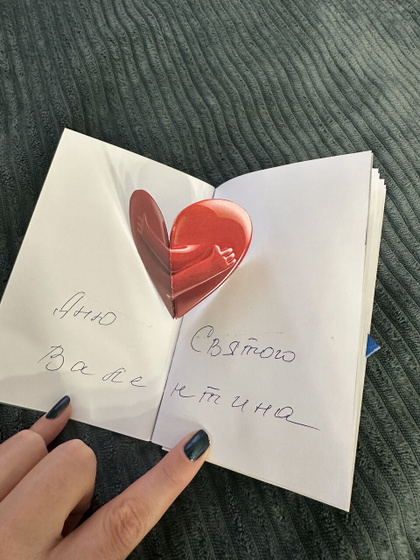 Дню Святого
Валентина